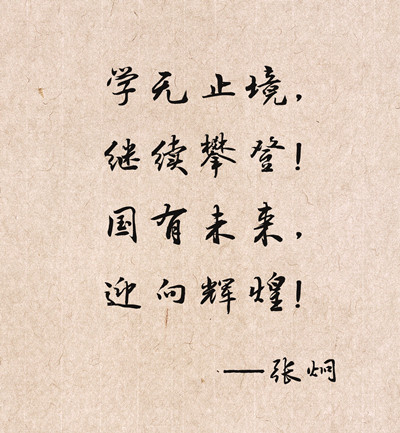 学无止境，
继续攀登！
国有未来，
迎向辉煌！
——张炯